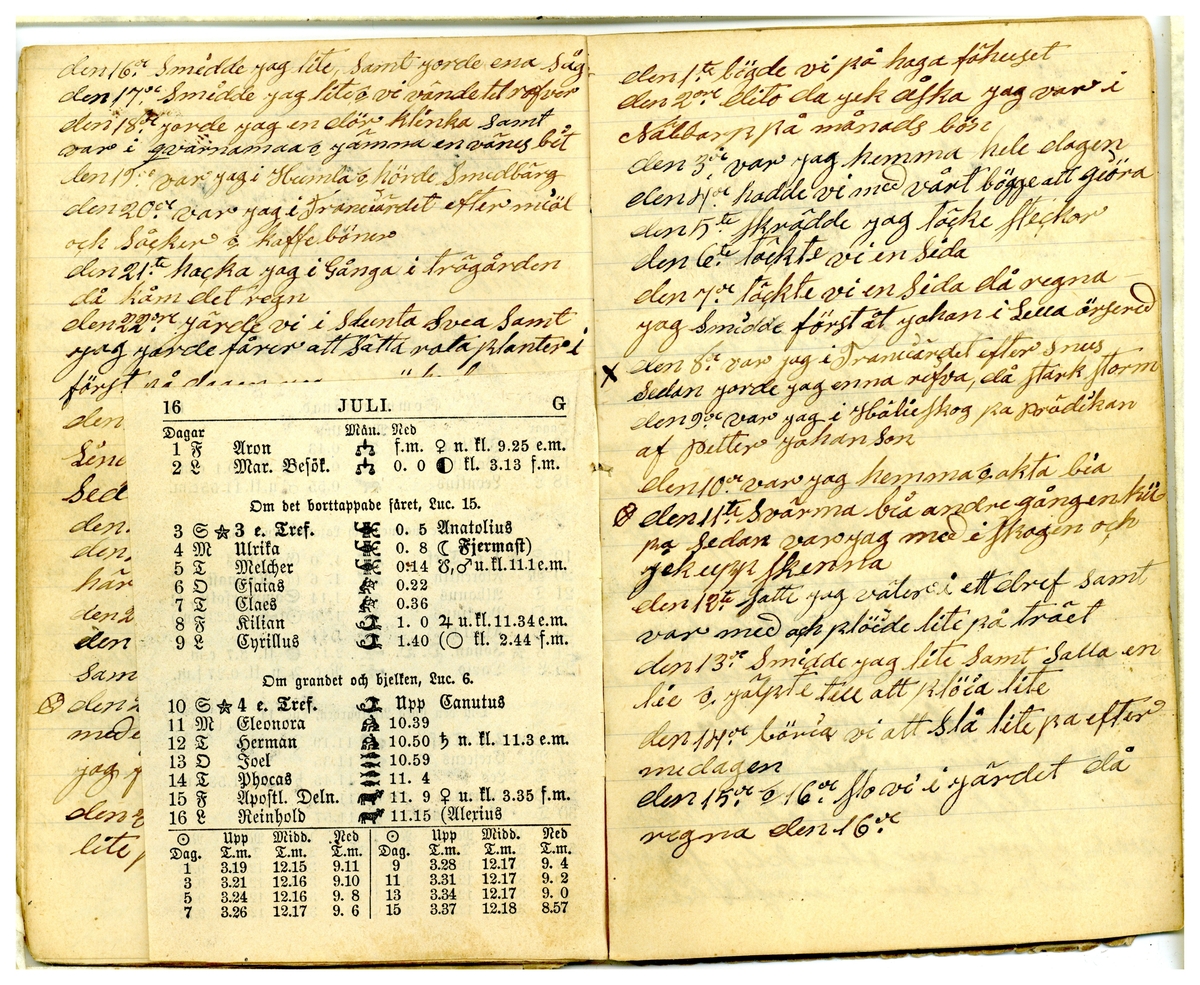 den 16de Smidde jag lite, samt jorde ena Såg
den 17de Smidde jag lite o vi vände til rofvor
den 18de jorde jag en dör klinka samt
var i qvärnamaa o jämma en vänes bit
den 19de var jag i Humla o hörde Smedbärg
den 20de var jag i Tranuärdet efter miöl
och Såcker o kaffe böner
den 21te hacka jag i Gånga i trägården
då kåm det regn
den 22dre gärde vi i Slunta Svea Samt
jag jorde fårer att Satta rota planter i
först på dagen
den
Sed
den
den
här
den 2
den
sam
den 2
med
jag
den
lite
16 JULI. G
Dagar Mån. Ned
1 F Aron f.m. ♀ n. kl. 9.25 e.m.
2 L Mar. Besök. 0. 0 ◐ kl. 3.13 f.m.
Om det borttappade fåret, Luc. 15.
3 S ☆ 3 e. Tref. 0. 5 Anatolius
4 M Ulrika 0. 8 ☾ Fjermast)
5 T Melcher 0.14 ☋,♂ u. kl. 11.1 e.m.
6 O Esaias 0.22
7 T Claes 0.36
8 F Kilian 1. 0 ♃ u. kl. 11.34 e.m.
9 L Cyrillus 1.40 (○ kl. 2.44 f.m.
Om grandet och bjelken, Luc. 6.
10 S ☆ 4 e. Tref. Upp Canutus
11 M Eleonora 10.39
12 T Herman 10.50 ♄ n. kl. 11.3 e.m.
13 O Joel 10.59
14 T Phocas 11. 4
15 F Apostl. Deln. 11. 9 ♀ u. kl. 3.35 f.m.
16 L Reinhold 11.15 (Alexius
☉ Upp Midd. Ned ☉ Upp Midd. Ned
Dag. T.m. T.m. T.m. Dag. T.m. T.m. T.m.
1 3.19 12.15 9.11 9 3.28 12.17 9. 4
3 3.21 12.16 9.10 11 3.31 12.17 9. 2
5 3.24 12.16 9. 8 13 3.34 12.17 9. 0
7 3.26 12.17 9. 6 15 3.37 12.18 8.57
den 1te bögde vi på haga fähuset
den 2dre dito da gek åska jag var i
Nälbarp på månads bön
den 3de var jag hemma hele dagen
den 4de hadde vi med vårt bögge att giöra
den 5te skrädde jag täcke steckor
den 6te täckte vi en Sida
den 7de täckte vi en Sida då regna
jag Smidde först åt johan i Lella örsered
x den 8de var jag i Tranuärdet efter snus
Sedan jorde jag enna rifva, då stark storm
den 9de var jag i Hälieskog pa prädikan
af petter johan Son
den 10de var jag hemma o akta bia
den 11te Svärma bia andre gången kū
pa Sedan var jag med i skogen och
gek upp skenna
den 12te Satte jag väler i ett dref samt
var med och plöide lite på träet
den 13de Smidde jag lite samt Salla en
lie o jälpte till att plöia lite
den 14de böria vi att Slå lite pa efter
medagen
den 15de o 16de slo vi i gärdet då
regna den 16de